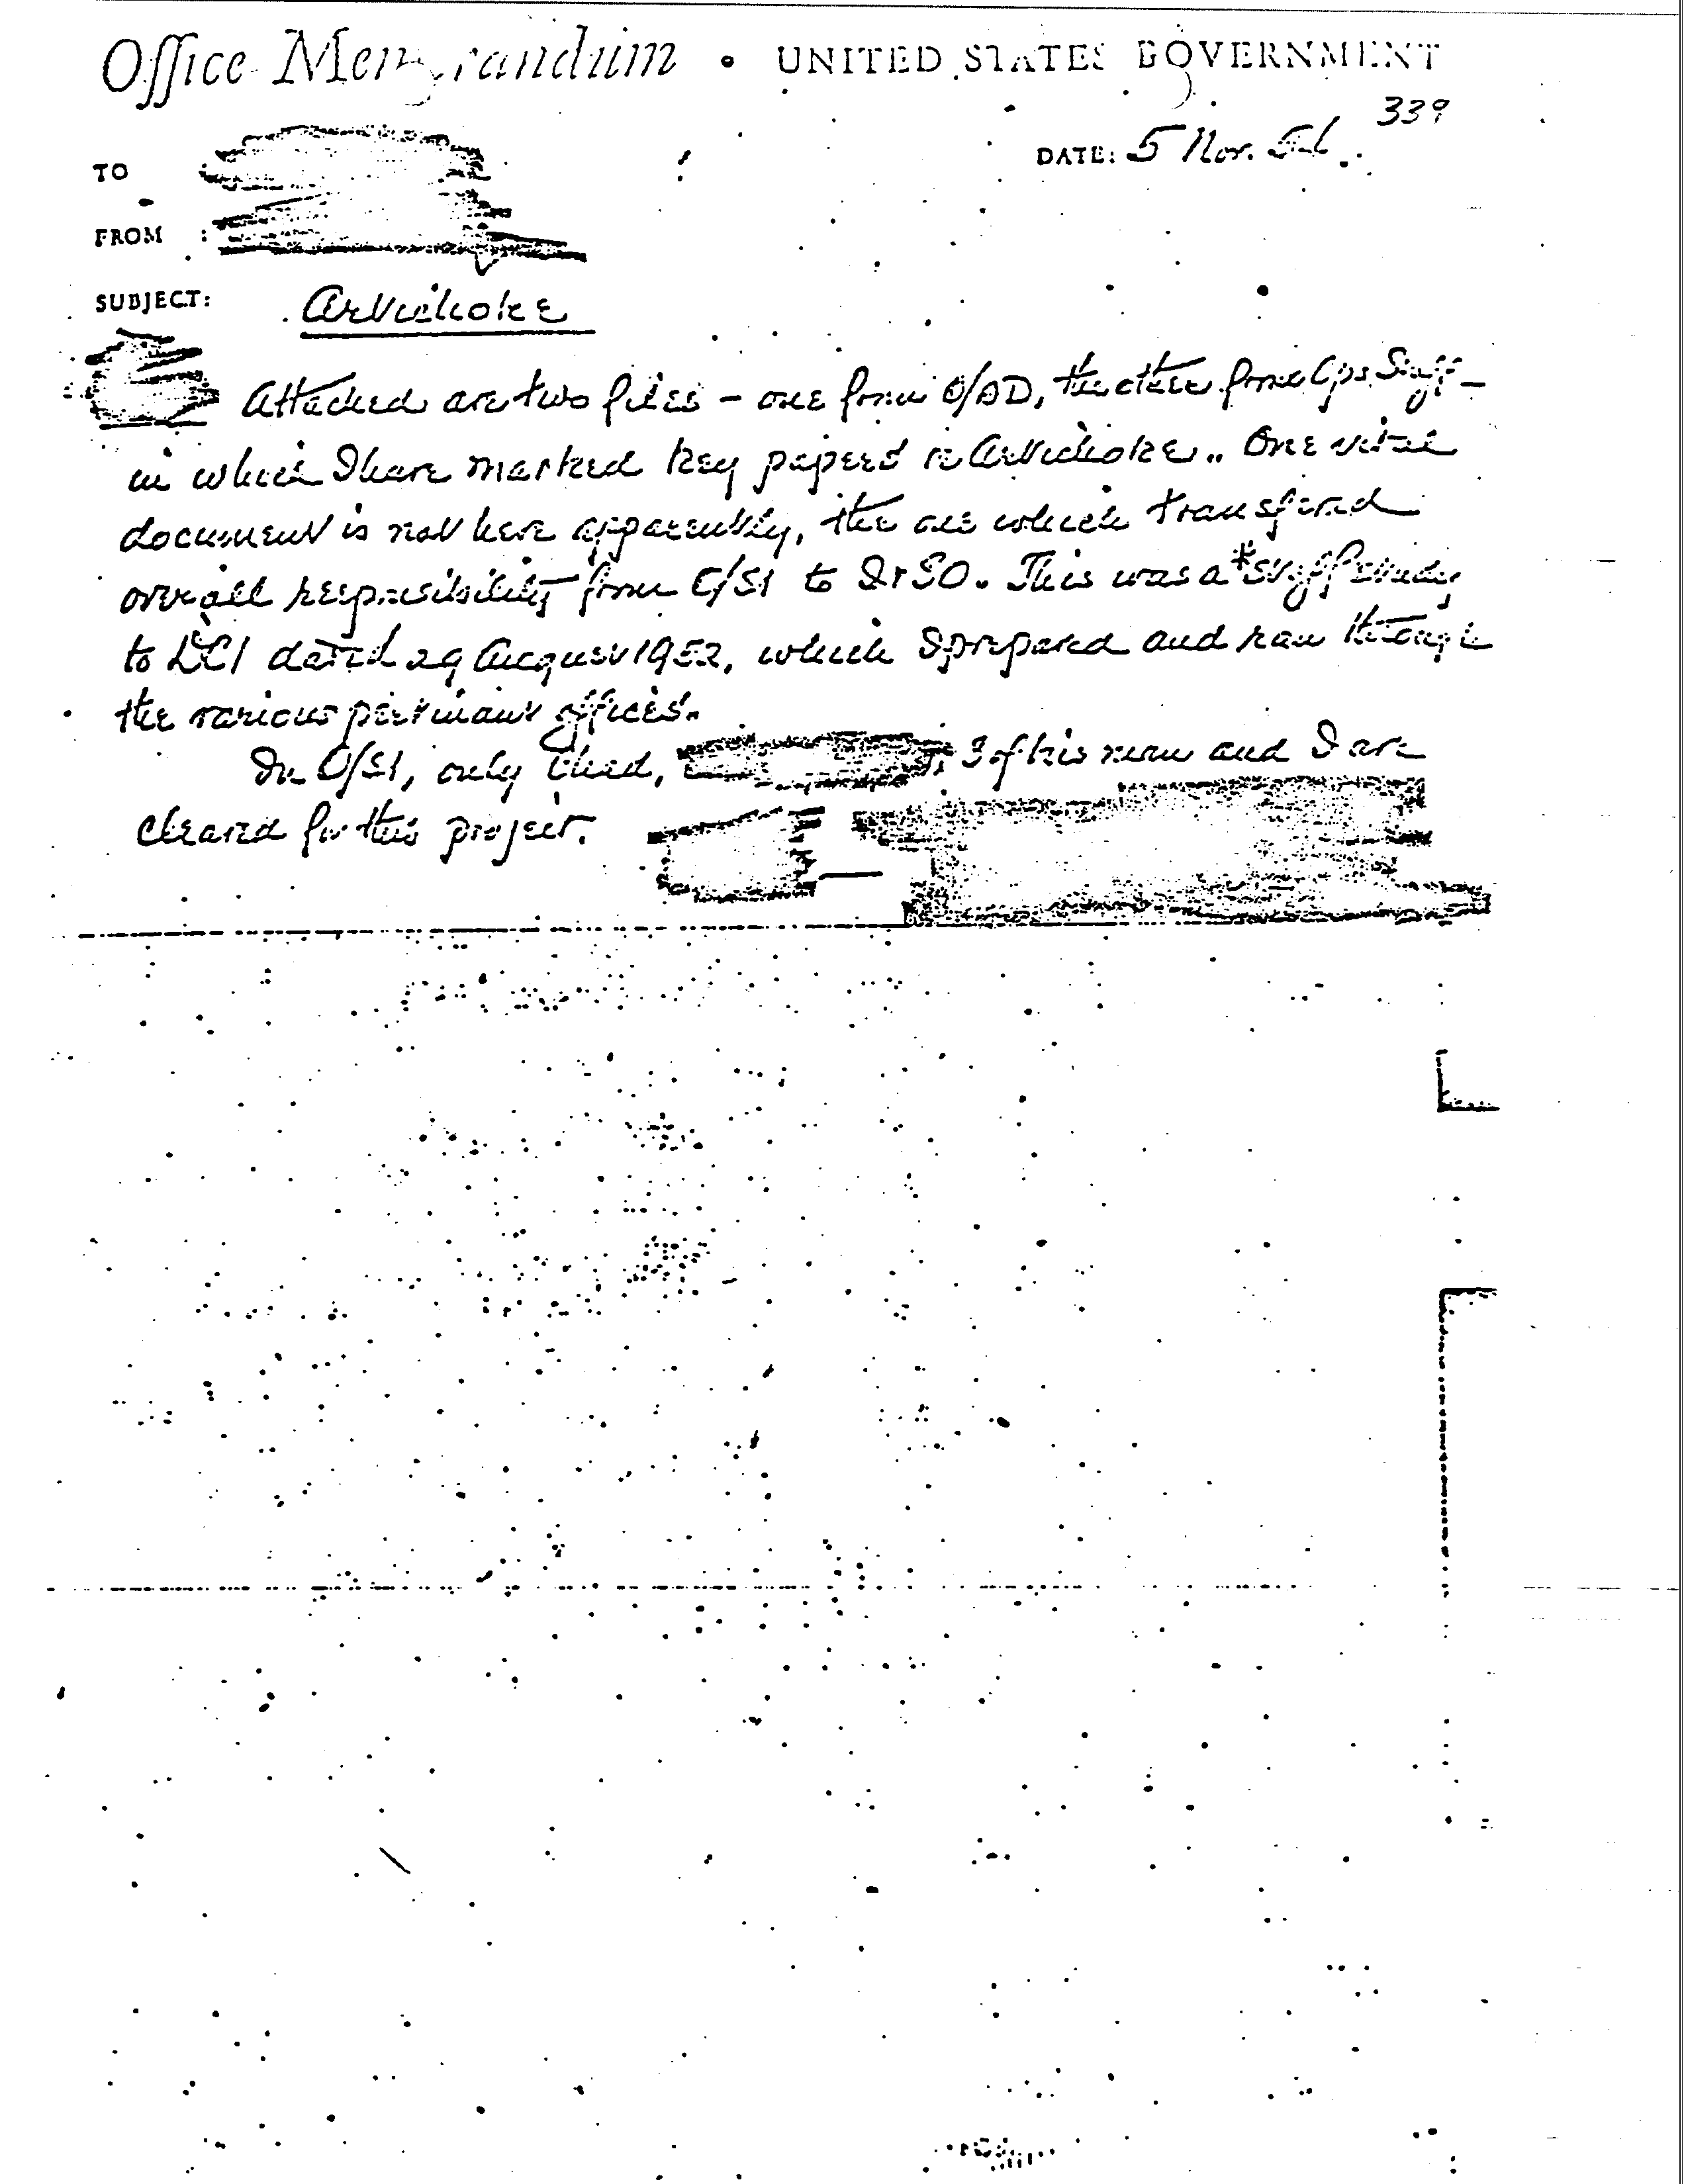 Office Memorandum • UNITED STATES GOVERNMENT
339
DATE: 5 Nov. 56
TO :
FROM :
SUBJECT: Artichoke
Attached are two files - one from O/AD, the other from Ops Staff -
in which I have marked key papers re Artichoke.. One vital
document is not here apparently, the one which transferred
overall responsibility from O/SI to I&SO. This was a *staff study
to DCI dated 29 August 1952, which I prepared and ran through
the various pertinent offices.
In O/SI, only Chad, 3 of his men and I are
cleared for this project.